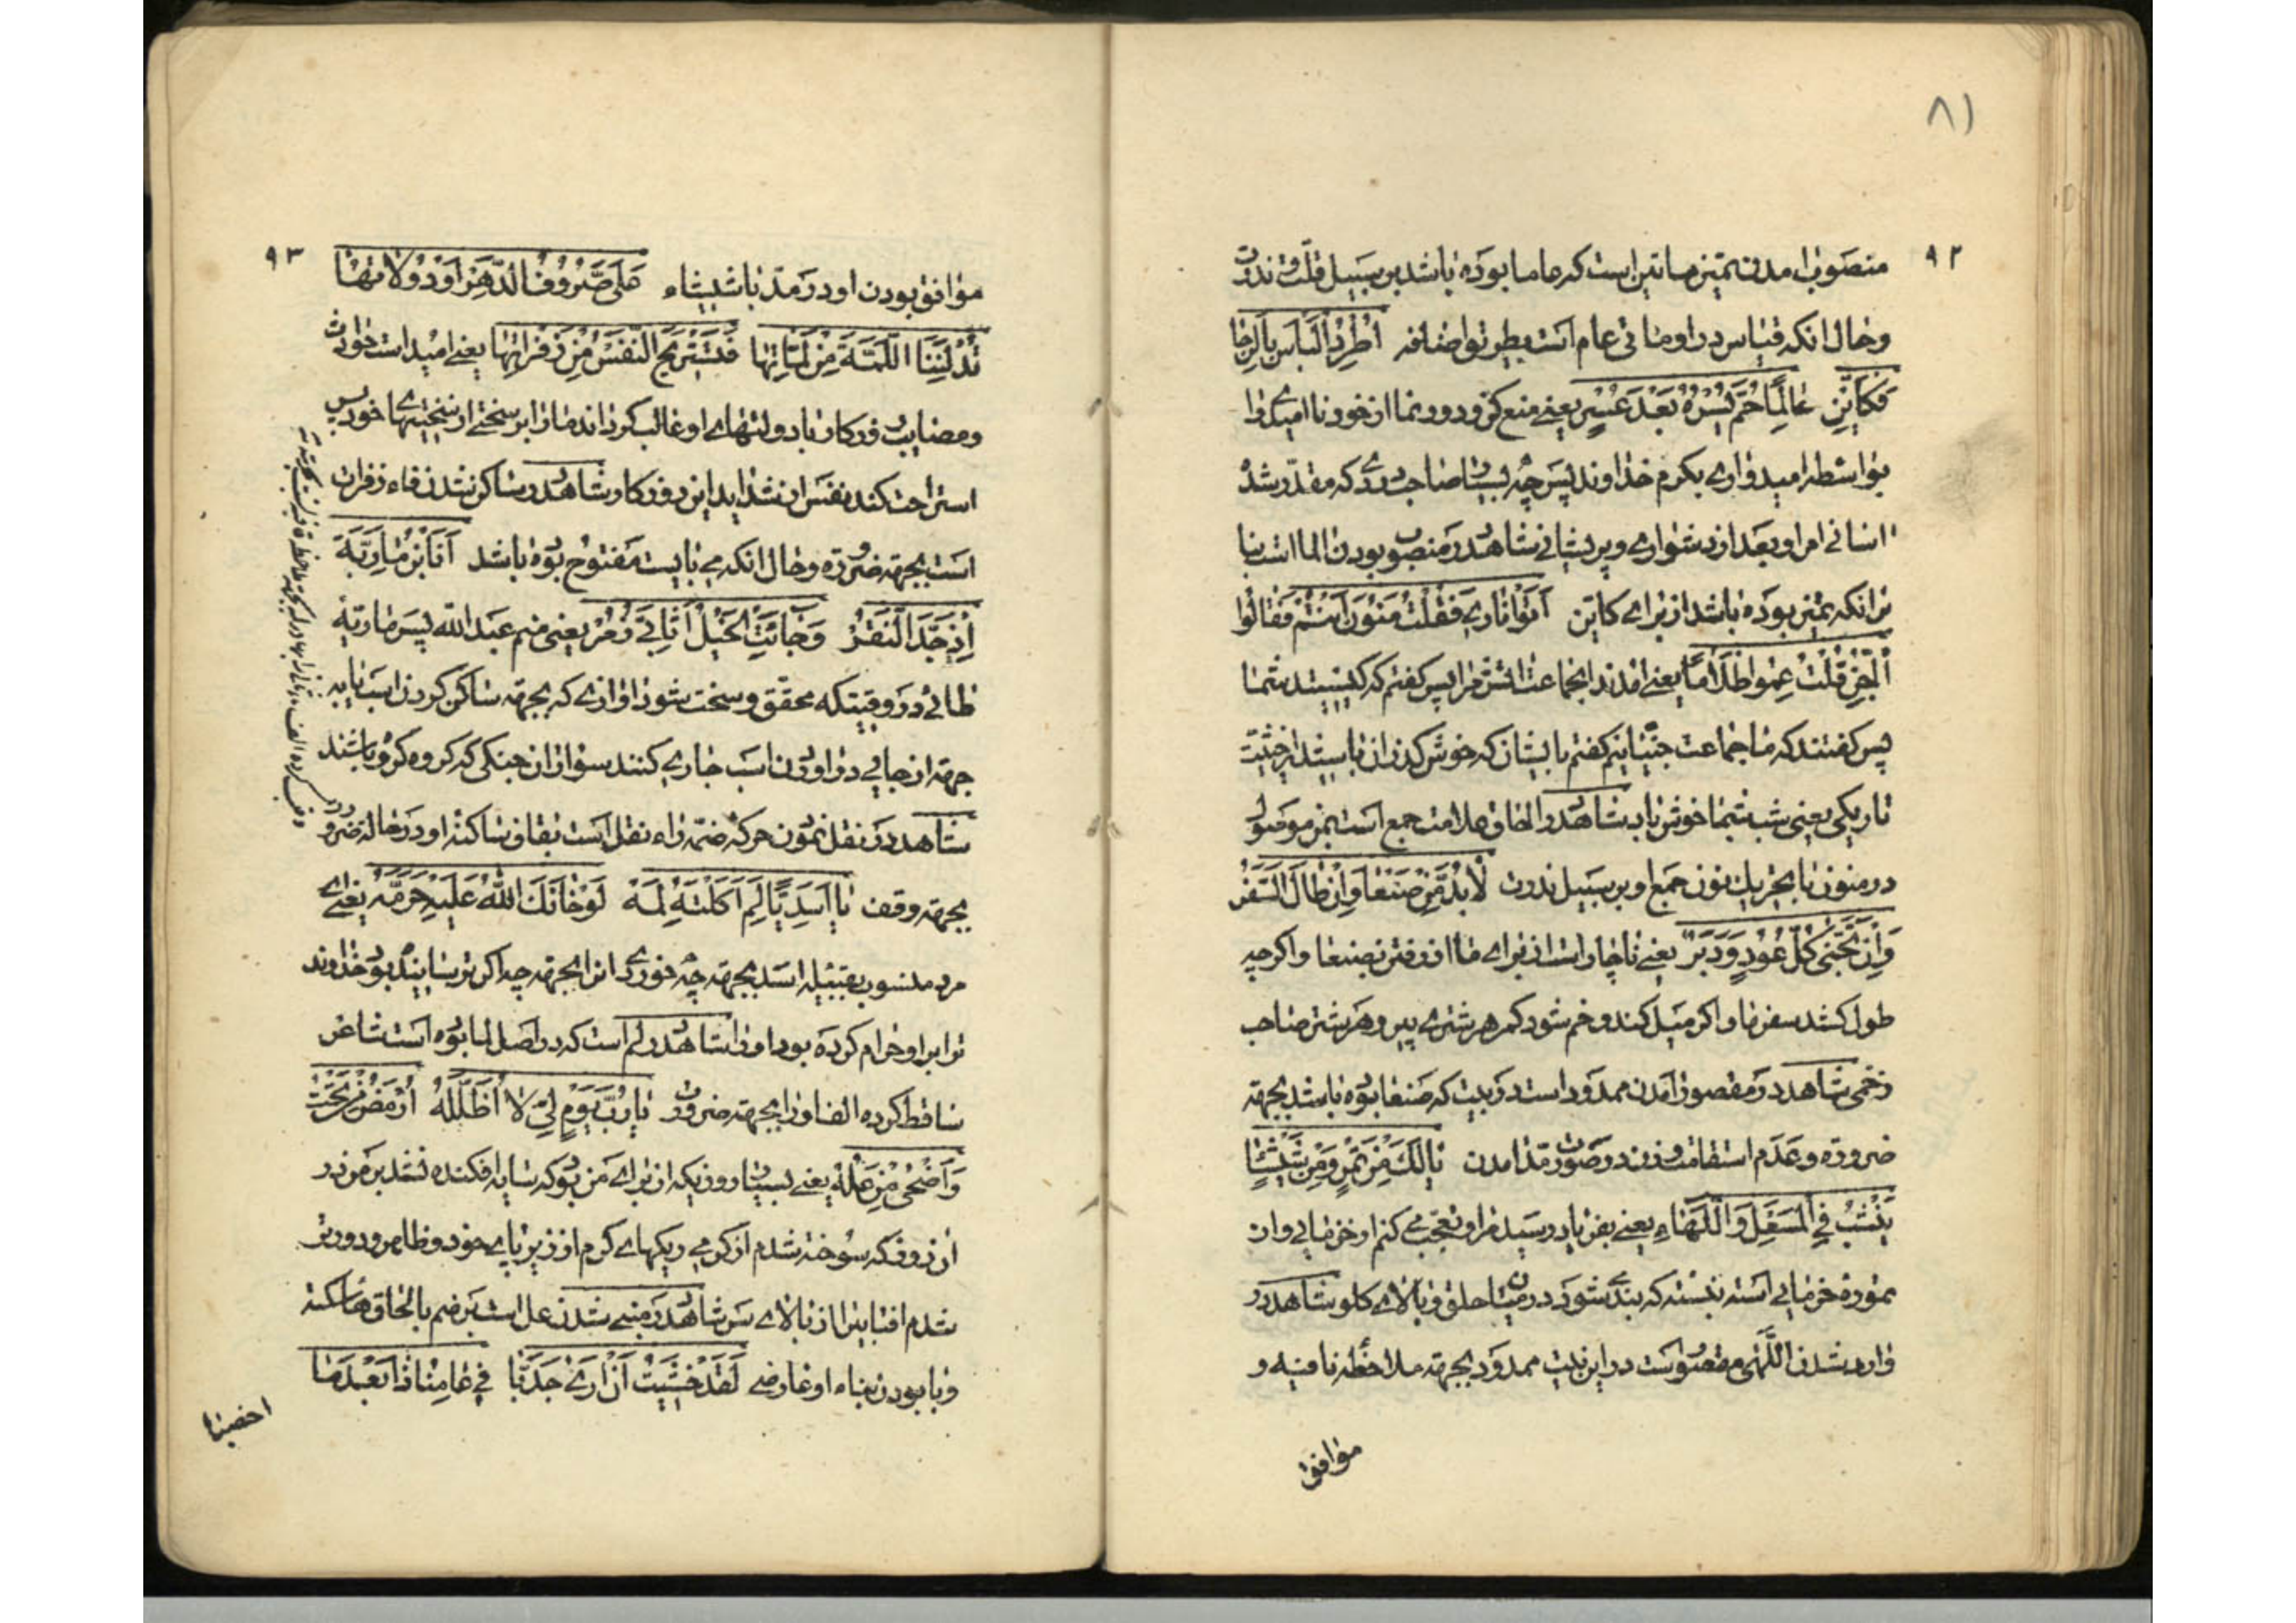 ۸۱
۹۲
منصوب امدن تمیز ماتین است که عاما بوده باشد بر سبیل قلّت و ندرت
وحال انکه قیاس در او مائتی عام است بطریق اضافه اُطْرُدِ الْیَاْسَ بِالرَّجَا
فَکَاَیِّنْ عَالِمًا حُمَّ یُسْرُهُ بَعْدَ عُسْرٍ یعنی منع کن و دور نما از خود ناامیدی را
بواسطه امیدواری بکرم خداوند پس چه بسیا صاحب دردی که مقدّر شد
اسانی امر او بعد از دشواری و پریشانی شاهد در منصوب بودن الما است بنا
بر انکه تمیز بوده باشد از برای کاین اَتَوْا نَارِی فَقُلْتُ مَنُوْنَ اَنْتُمْ فَقَالُوا
اَلْجِنُّ قُلْتُ عِمُوا ظَلَامًا یعنی امدند انجماعت اتش مرا پس کفتم که کیستید شما
پس کفتند که ما جماعت جنیّانیم کفتم بایشان که خوش کذران باشید از حیثیّت
تاریکی یعنی شب شما خوش باد شاهد در الحاق علامت جمع است بمن موصول
در منون با تحریك نون جمع او بر سبیل ندرت لَابُدَّ مِنْ صَنْعَا وَاِنْ طَالَ السَّفَرُ
وَاِنْ تَحَنّٰی کُلُّ عُوْدٍ وَدَبَرْ یعنی ناچار است از برای ما از رفتن بصنعا و اکرچه
طول کشد سفر ما و اکر میل کند و خم شود کمر هر شتری پیر و هر شتر صاحب
زخمی شاهد در مقصور امدن ممدود است در بیت که صنعا بوده باشد بجهته
ضروره و عدم استقامت وزن در صورت مدّ امدن یَالَکَ مِنْ تَمْرٍ وَمِنْ شِیْشَاءٍ
یَنْشَبُ فِی الْمَسْعَلِ وَاللَّهَاءِ یعنی بفریاد رسید مرا و تعجّب می کنم از خرمائی و از
نموره خرمائی استه نبسته که بند می شود در میان حلق و بالای کلو شاهد در
وارد شدن اللَّهٰی مقصور است در این بیت ممدود بجهته ملاحظه قافیه و
موافق
۹۳
موافق بودن او در مدّ با شیشاء عَلَّ صُرُوْفَ الدَّهْرِ اَوْ دُوْلَاتِهَا
تُدِلْنَنَا اللَّمَّةَ مِنْ لَمَّاتِهَا فَتَسْتَرِیْحَ النَّفْسُ مِنْ زَفْرَاتِهَا یعنی امید است حوادث
ومصایب روزکار یا دولتهای او غالب کرداند ما را بر سختی از سختیهای خود پس
استراحت کند نفس از شداید این روزکار شاهد در ساکن شدن فاء زفرات
است بجهته ضروره وحال انکه می بایست مفتوح بوده باشد اَنَا ابْنُ مَاوِیَّةَ
اِذْ جَدَّ النَّقُرْ وَجَائَتِ الْخَیْلُ اَثَابِیَّ زُمَرْ یعنی منم عبد الله پسر ماویّهٔ
طائی در وقتیکه محقّق و سخت شود اوازی که بجهته ساکن کردن اسب یا به
جهته از جایی در اوردن اسب جاری کنند سواران جنکی که کروه کروه باشند
شاهد در نقل نمودن حرکه ضمّه راء نقل است بقاف ساکنه او در حاله ضرورت
بجهته وقف یَا اَسَدِیًّا لِمَ اَکَلْتَهُ لِمَهْ لَوْ خَافَكَ اللهُ عَلَیْهِ حَرَّمَهْ یعنی ای
مرد منسوب بقبیله اسد بجهته چه خوردی انرا بجهته چه اکر ترسانیده بود خداوند
ترا بر او حرام کرده بود او را شاهد در لم است که در اصل لما بوده است شاعر
ساقط کرده الف او را بجهته ضرورت یَا رُبَّ یَوْمٍ لِیْ لَا اُظَلَّلُهْ اُرْمَضُ مِنْ تَحْتُ
وَاُضْحٰی مِنْ عَلُهْ یعنی بسیا روزیکه از برای من بود که سایه افکنده نشد بر من در
ان روز که سوخته شدم از کرمی ریکهای کرم از زیر پای خود و ظاهر و دور تر
شدم افتابیرا از بالای سر شاهد در مبنی شدن عل است بر ضم با الحاق هاء سکته
وبا بودن بناء او عارضی لَقَدْ خَشِیْتُ اَنْ اَرٰی جَدَبَّا فِیْ عَامِنَا ذَا بَعْدَمَا
اخصبا